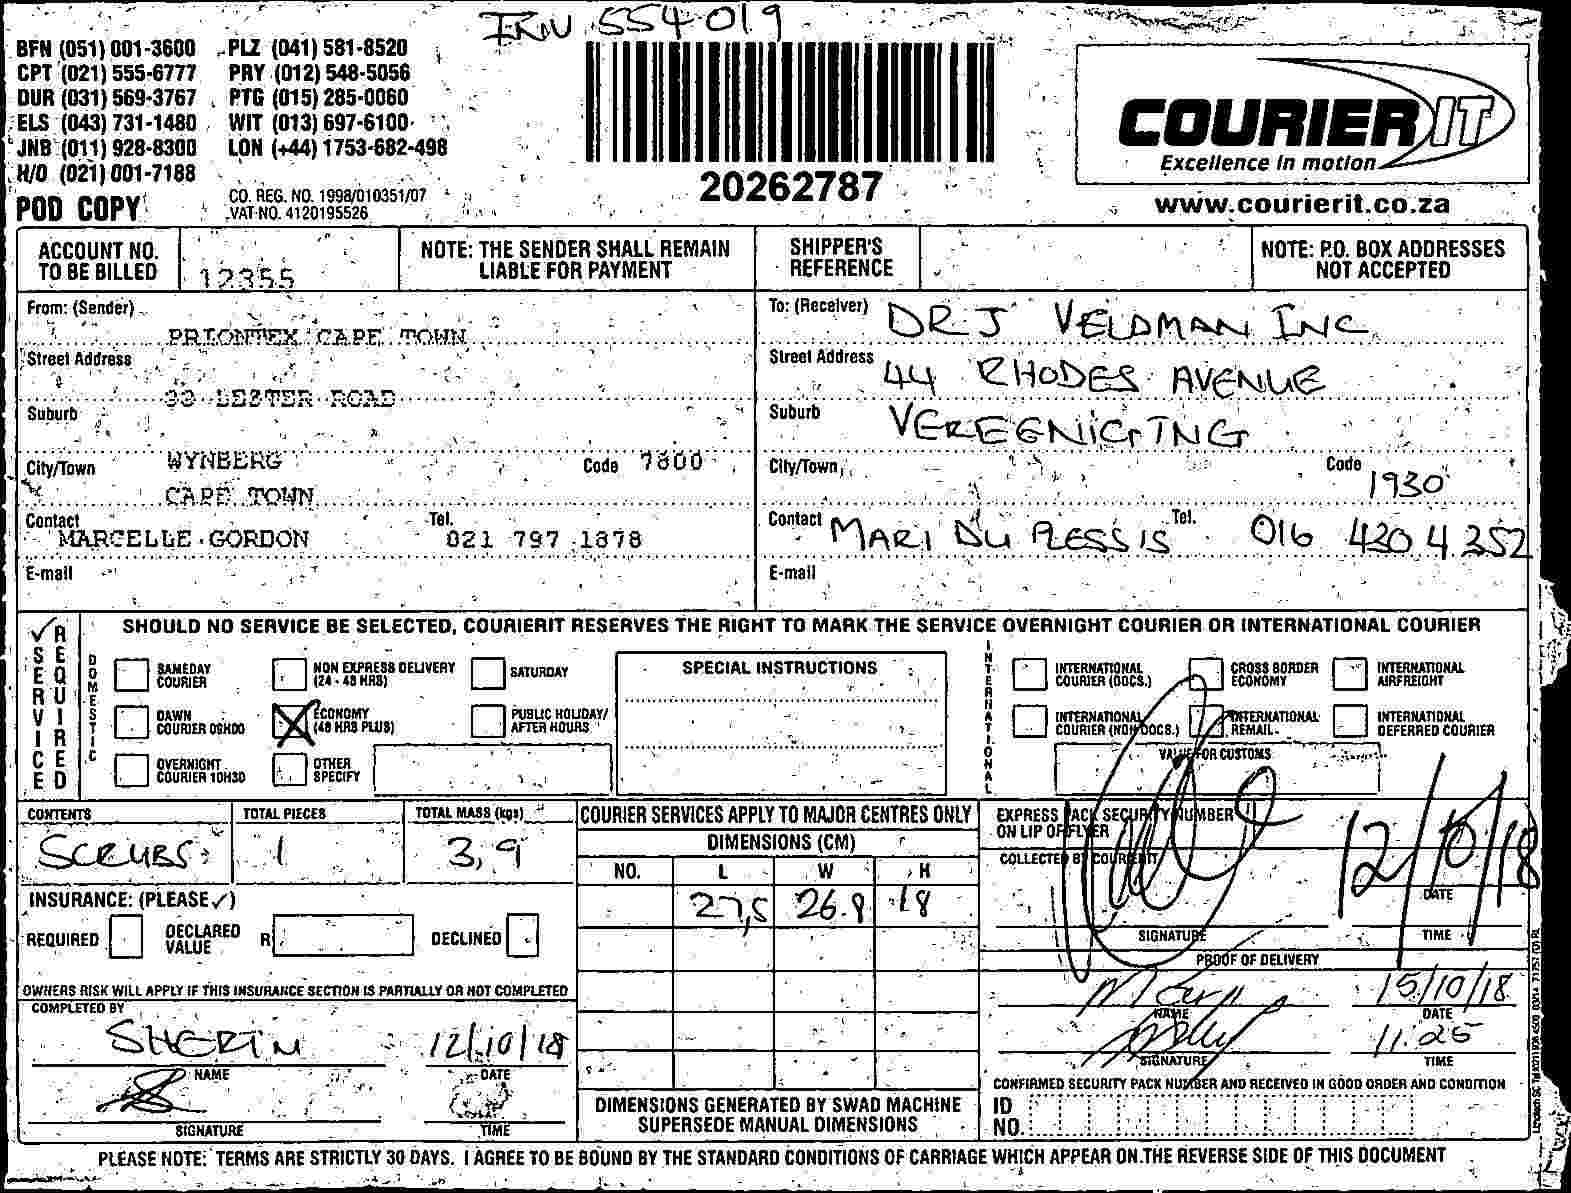 INV 554019
BFN (051) 001-3600 PLZ (041) 581-8520
CPT (021) 555-6777 PRY (012) 548-5056
DUR (031) 569-3767 PTG (015) 285-0060
ELS (043) 731-1480 WIT (013) 697-6100
JNB (011) 928-8300 LON (+44) 1753-682-498
H/O (021) 001-7188
POD COPY
CO. REG. NO. 1998/010351/07
VAT NO. 4120195526
20262787
COURIER IT
Excellence in motion
www.courierit.co.za
ACCOUNT NO. TO BE BILLED 12355
NOTE: THE SENDER SHALL REMAIN LIABLE FOR PAYMENT
SHIPPER'S REFERENCE
NOTE: P.O. BOX ADDRESSES NOT ACCEPTED
From: (Sender)
PRIONTEX CAPE TOWN
Street Address
LESTER ROAD
Suburb
WYNBERG
City/Town Code 7800
CAPE TOWN
Contact MARCELLE GORDON Tel. 021 797 1878
E-mail
To: (Receiver) DR J VELDMAN INC
Street Address 44 RHODES AVENUE
Suburb VEREENIGING
City/Town Code 1930
Contact MARI DU PLESSIS Tel. 016 430 4352
E-mail
SERVICE REQUIRED
SHOULD NO SERVICE BE SELECTED, COURIERIT RESERVES THE RIGHT TO MARK THE SERVICE OVERNIGHT COURIER OR INTERNATIONAL COURIER
DOMESTIC
SAMEDAY COURIER
NON EXPRESS DELIVERY (24 - 48 HRS)
SATURDAY
DAWN COURIER 09H00
ECONOMY (48 HRS PLUS)
PUBLIC HOLIDAY/ AFTER HOURS
OVERNIGHT COURIER 10H30
OTHER SPECIFY
SPECIAL INSTRUCTIONS
INTERNATIONAL
INTERNATIONAL COURIER (DOCS.)
CROSS BORDER ECONOMY
INTERNATIONAL AIRFREIGHT
INTERNATIONAL COURIER (NON DOCS.)
INTERNATIONAL REMAIL
INTERNATIONAL DEFERRED COURIER
VALUE FOR CUSTOMS
CONTENTS TOTAL PIECES TOTAL MASS (kgs)
SCRUBS 1 3,9
INSURANCE: (PLEASE ✓)
REQUIRED DECLARED VALUE R DECLINED
OWNERS RISK WILL APPLY IF THIS INSURANCE SECTION IS PARTIALLY OR NOT COMPLETED
COMPLETED BY
12/10/18
NAME DATE
SIGNATURE TIME
COURIER SERVICES APPLY TO MAJOR CENTRES ONLY
DIMENSIONS (CM)
NO. L W H
27,5 26.8 18
DIMENSIONS GENERATED BY SWAD MACHINE SUPERSEDE MANUAL DIMENSIONS
EXPRESS PACK SECURITY NUMBER ON LIP OF FLYER
COLLECTED BY COURIERIT
12/10/18
DATE
SIGNATURE TIME
PROOF OF DELIVERY
15/10/18
NAME DATE
11:25
SIGNATURE TIME
CONFIRMED SECURITY PACK NUMBER AND RECEIVED IN GOOD ORDER AND CONDITION
ID NO.
PLEASE NOTE: TERMS ARE STRICTLY 30 DAYS. I AGREE TO BE BOUND BY THE STANDARD CONDITIONS OF CARRIAGE WHICH APPEAR ON THE REVERSE SIDE OF THIS DOCUMENT